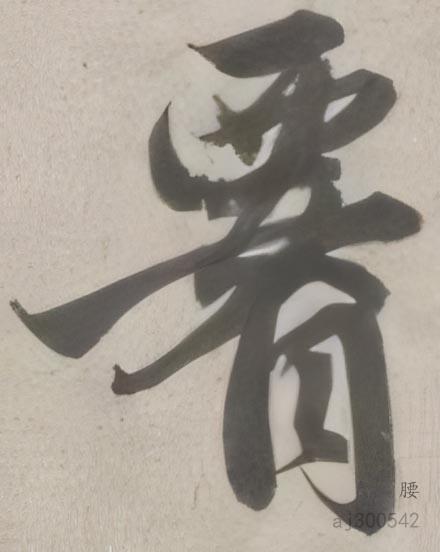 腰
腰
aj300542